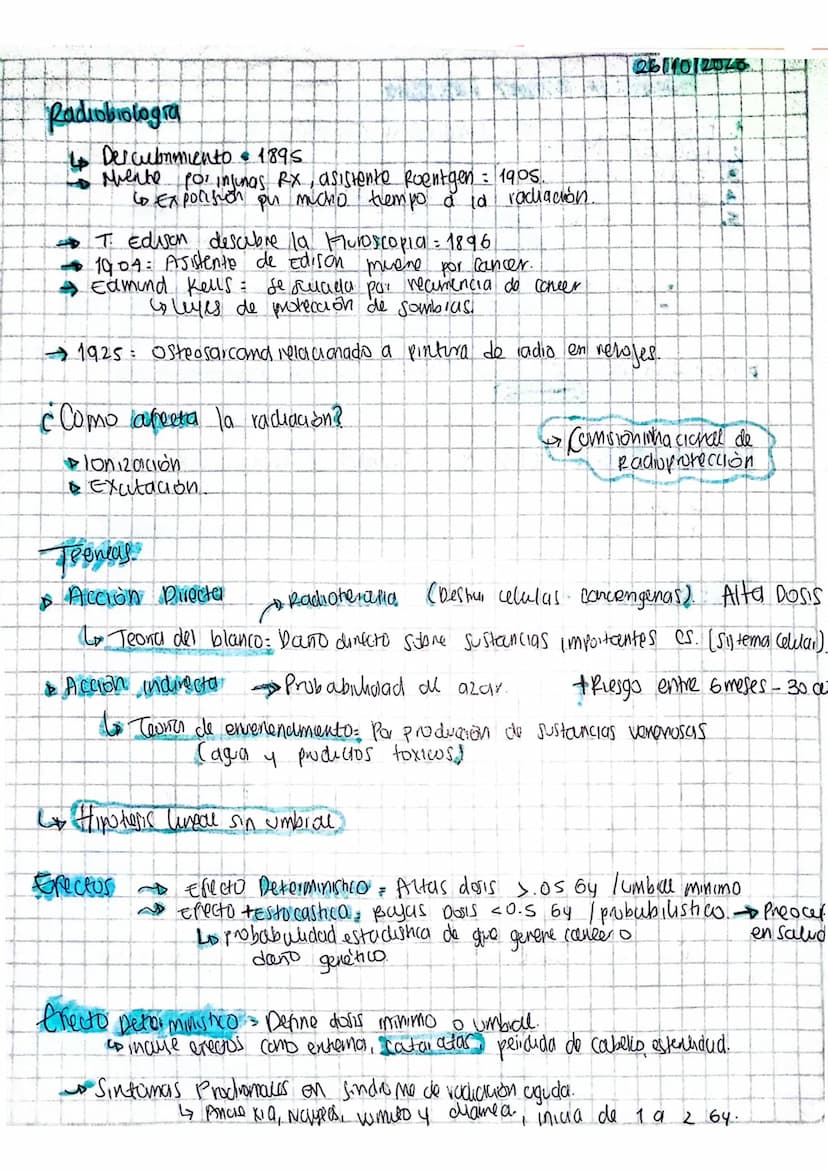 26/10/2023
Radiobiología
↳ Descubrimiento • 1895
→ Muerte por injurias RX, asistente Roentgen = 1905.
↳ Exposición por mucho tiempo a la radiación.
→ T. Edison descubre la Fluroscopia = 1896
→ 1904: Asistente de Edison muere por cancer.
→ Edmund Kells = se suicida por recurrencia de cancer
↳ Leyes de protección de sombras.
→ 1925: Osteosarcoma relacionado a pintura de radio en relojes.
¿Como afecta la radiación?
→ Comision de Radioprotección
▸ Ionización
▸ Excitación.
Teorias.
▸ Acción Directa → Radioterapia (Destruir celulas cancerigenas). Alta Dosis
↳ Teoria del blanco: Daño directo sobre sustancias importantes cs. (sistema celular)
▸ Acción indirecta → Probabilidad al azar. + Riesgo entre 6 meses - 30
↳ Teoria de envenenamiento: Por producción de sustancias venenosas
(agua y productos toxicos)
↳ Hipotesis lineal sin umbral
Efectos → Efecto Deterministico = Altas dosis >.05 Gy / umbral minimo
→ Efecto testocastico: Bajas dosis <0.5 Gy / probubilistico. →
en salud
↳ probabilidad estadistica de que genere cancer o
daño genético.
Efecto Deterministico = Define dosis minimo o umbral.
↳ incluye efectos como eritema, cataratas, perdida de cabello, esterilidad.
→ Sintomas Prodromales en sindrome de radiación aguda.
↳ Anorexia, Nauseas, vomito y diarrea, inicia de 1 a 2 Gy.